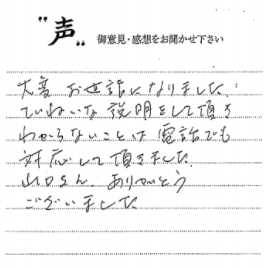 "声"
御意見・感想をお聞かせ下さい
大変 お世話になりました。
ていねいな 説明をして頂き
わからないことは 電話でも
対応して頂きました
山口さん ありがとう
ございました